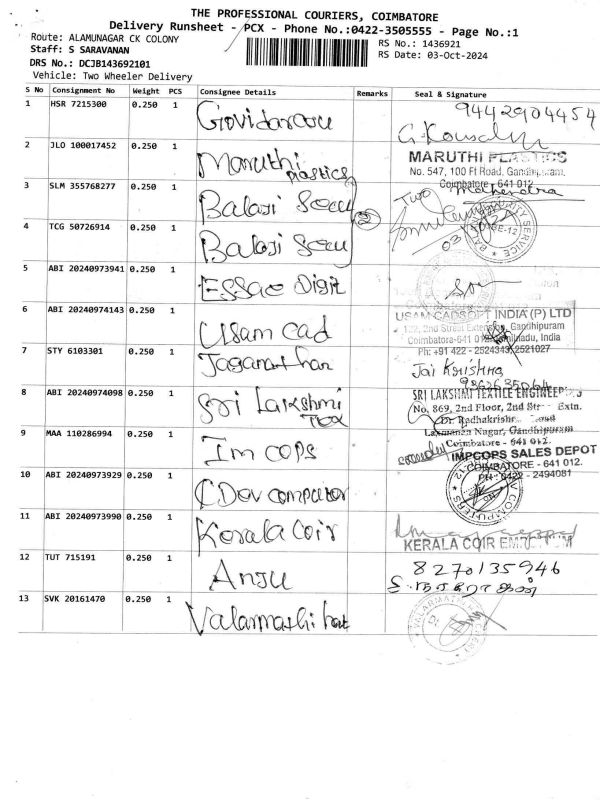 THE PROFESSIONAL COURIERS, COIMBATORE
Delivery Runsheet - PCX - Phone No.:0422-3505555 - Page No.:1
Route: ALAMUNAGAR CK COLONY
RS No.: 1436921
Staff: S SARAVANAN
RS Date: 03-Oct-2024
DRS No.: DCJB143692101
Vehicle: Two Wheeler Delivery
S No Consignment No Weight PCS Consignee Details Remarks Seal & Signature
1 HSR 7215300 0.250 1 Govidarasu 9442904454
2 JLO 100017452 0.250 1 Maruthi plastics
MARUTHI PLASTICS
No. 547, 100 Ft Road, Gandhipuram,
Coimbatore - 641 012.
3 SLM 355768277 0.250 1 Balaji Secu
Mahendra
4 TCG 50726914 0.250 1 Balaji Secu
5 ABI 20240973941 0.250 1 Essae Digit
6 ABI 20240974143 0.250 1 Usam cad
USAM CADSOFT INDIA (P) LTD
122, 2nd Street Extension, Gandhipuram
Coimbatore-641 012. Tamilnadu, India
Ph: +91 422 - 2524343, 2521027
7 STY 6103301 0.250 1 Jaganathan Jai Krishna
8 ABI 20240974098 0.250 1 Sri Lakshmi Tex
SRI LAKSHMI TEXTILE ENGINEERS
No. 869, 2nd Floor, 2nd Extn.
Dr. Radhakrishnan Road
Laxmanan Nagar, Gandhipuram
Coimbatore - 641 012.
9 MAA 110286994 0.250 1 Imcops
IMPCOPS SALES DEPOT
COIMBATORE - 641 012.
PH: 0422 - 2494081
10 ABI 20240973929 0.250 1 CDev computer
11 ABI 20240973990 0.250 1 Kerala Coir
KERALA COIR EMPORIUM
12 TUT 715191 0.250 1 Anju 8270135946
13 SVK 20161470 0.250 1 Valarmathi